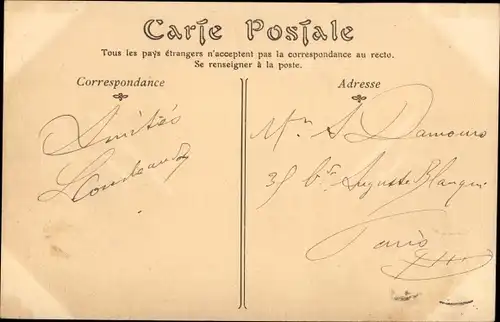 Carte Postale
Tous les pays étrangers n'acceptent pas la correspondance au recto.
Se renseigner à la poste.
Correspondance
Amitiés
Adresse
Mr S Damours
35 bd Auguste Blanqui
Paris
XIII